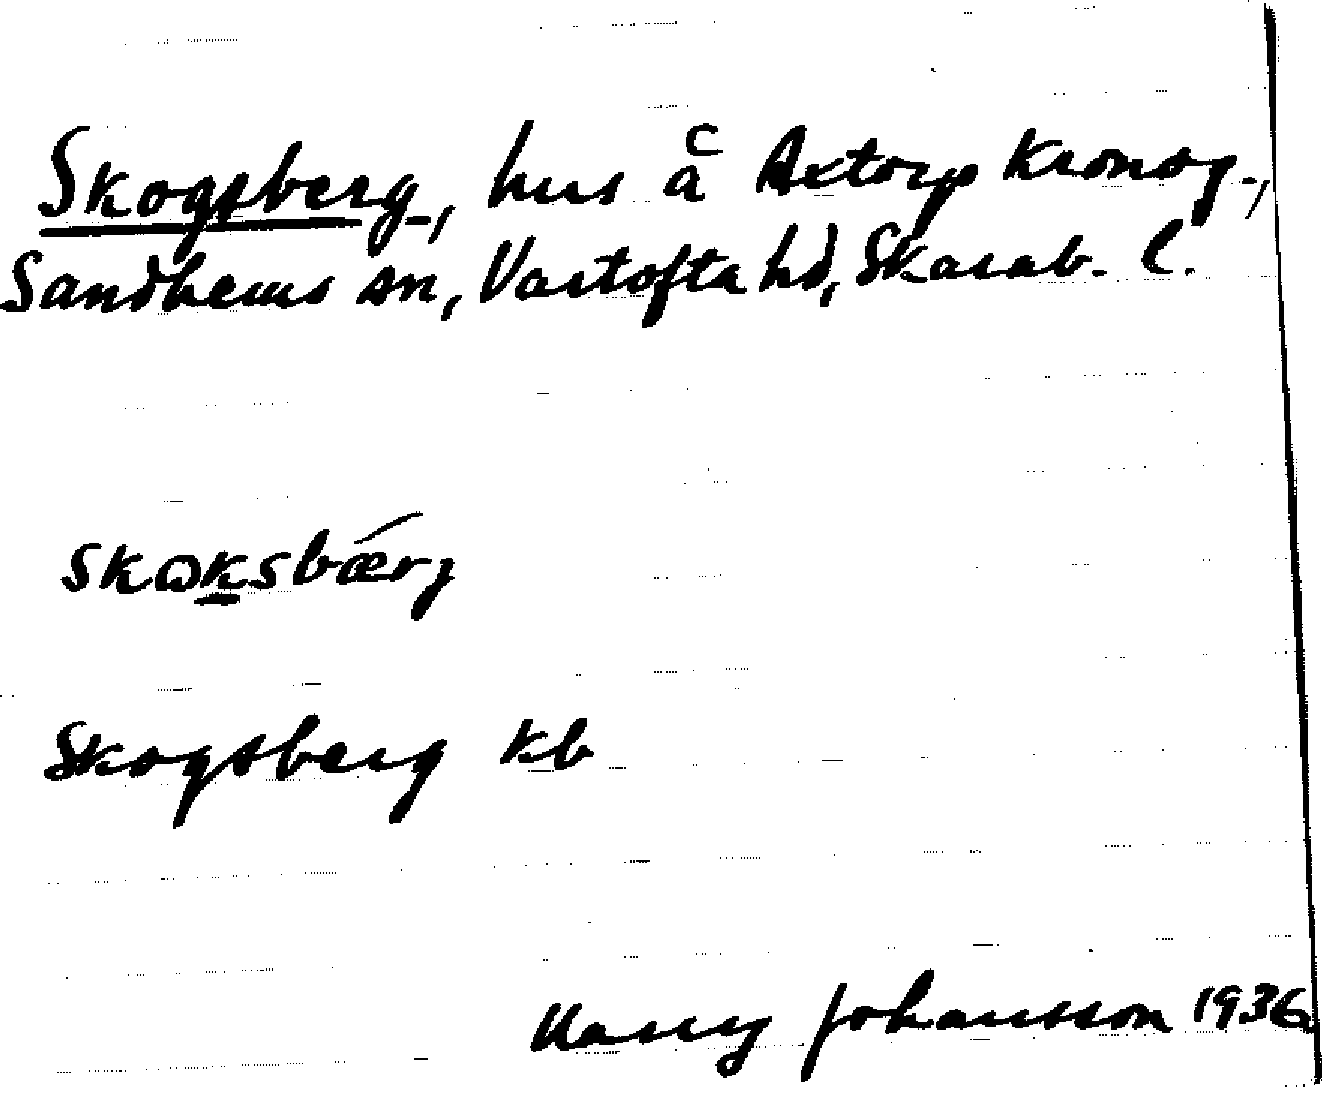 Skogsberg, hus å Axtorp Kronog.,
Sandhems sn, Vartofta hd, Skarab. l.
skɷksbǽrj
Skogsberg kb
Harry Johansson 1936